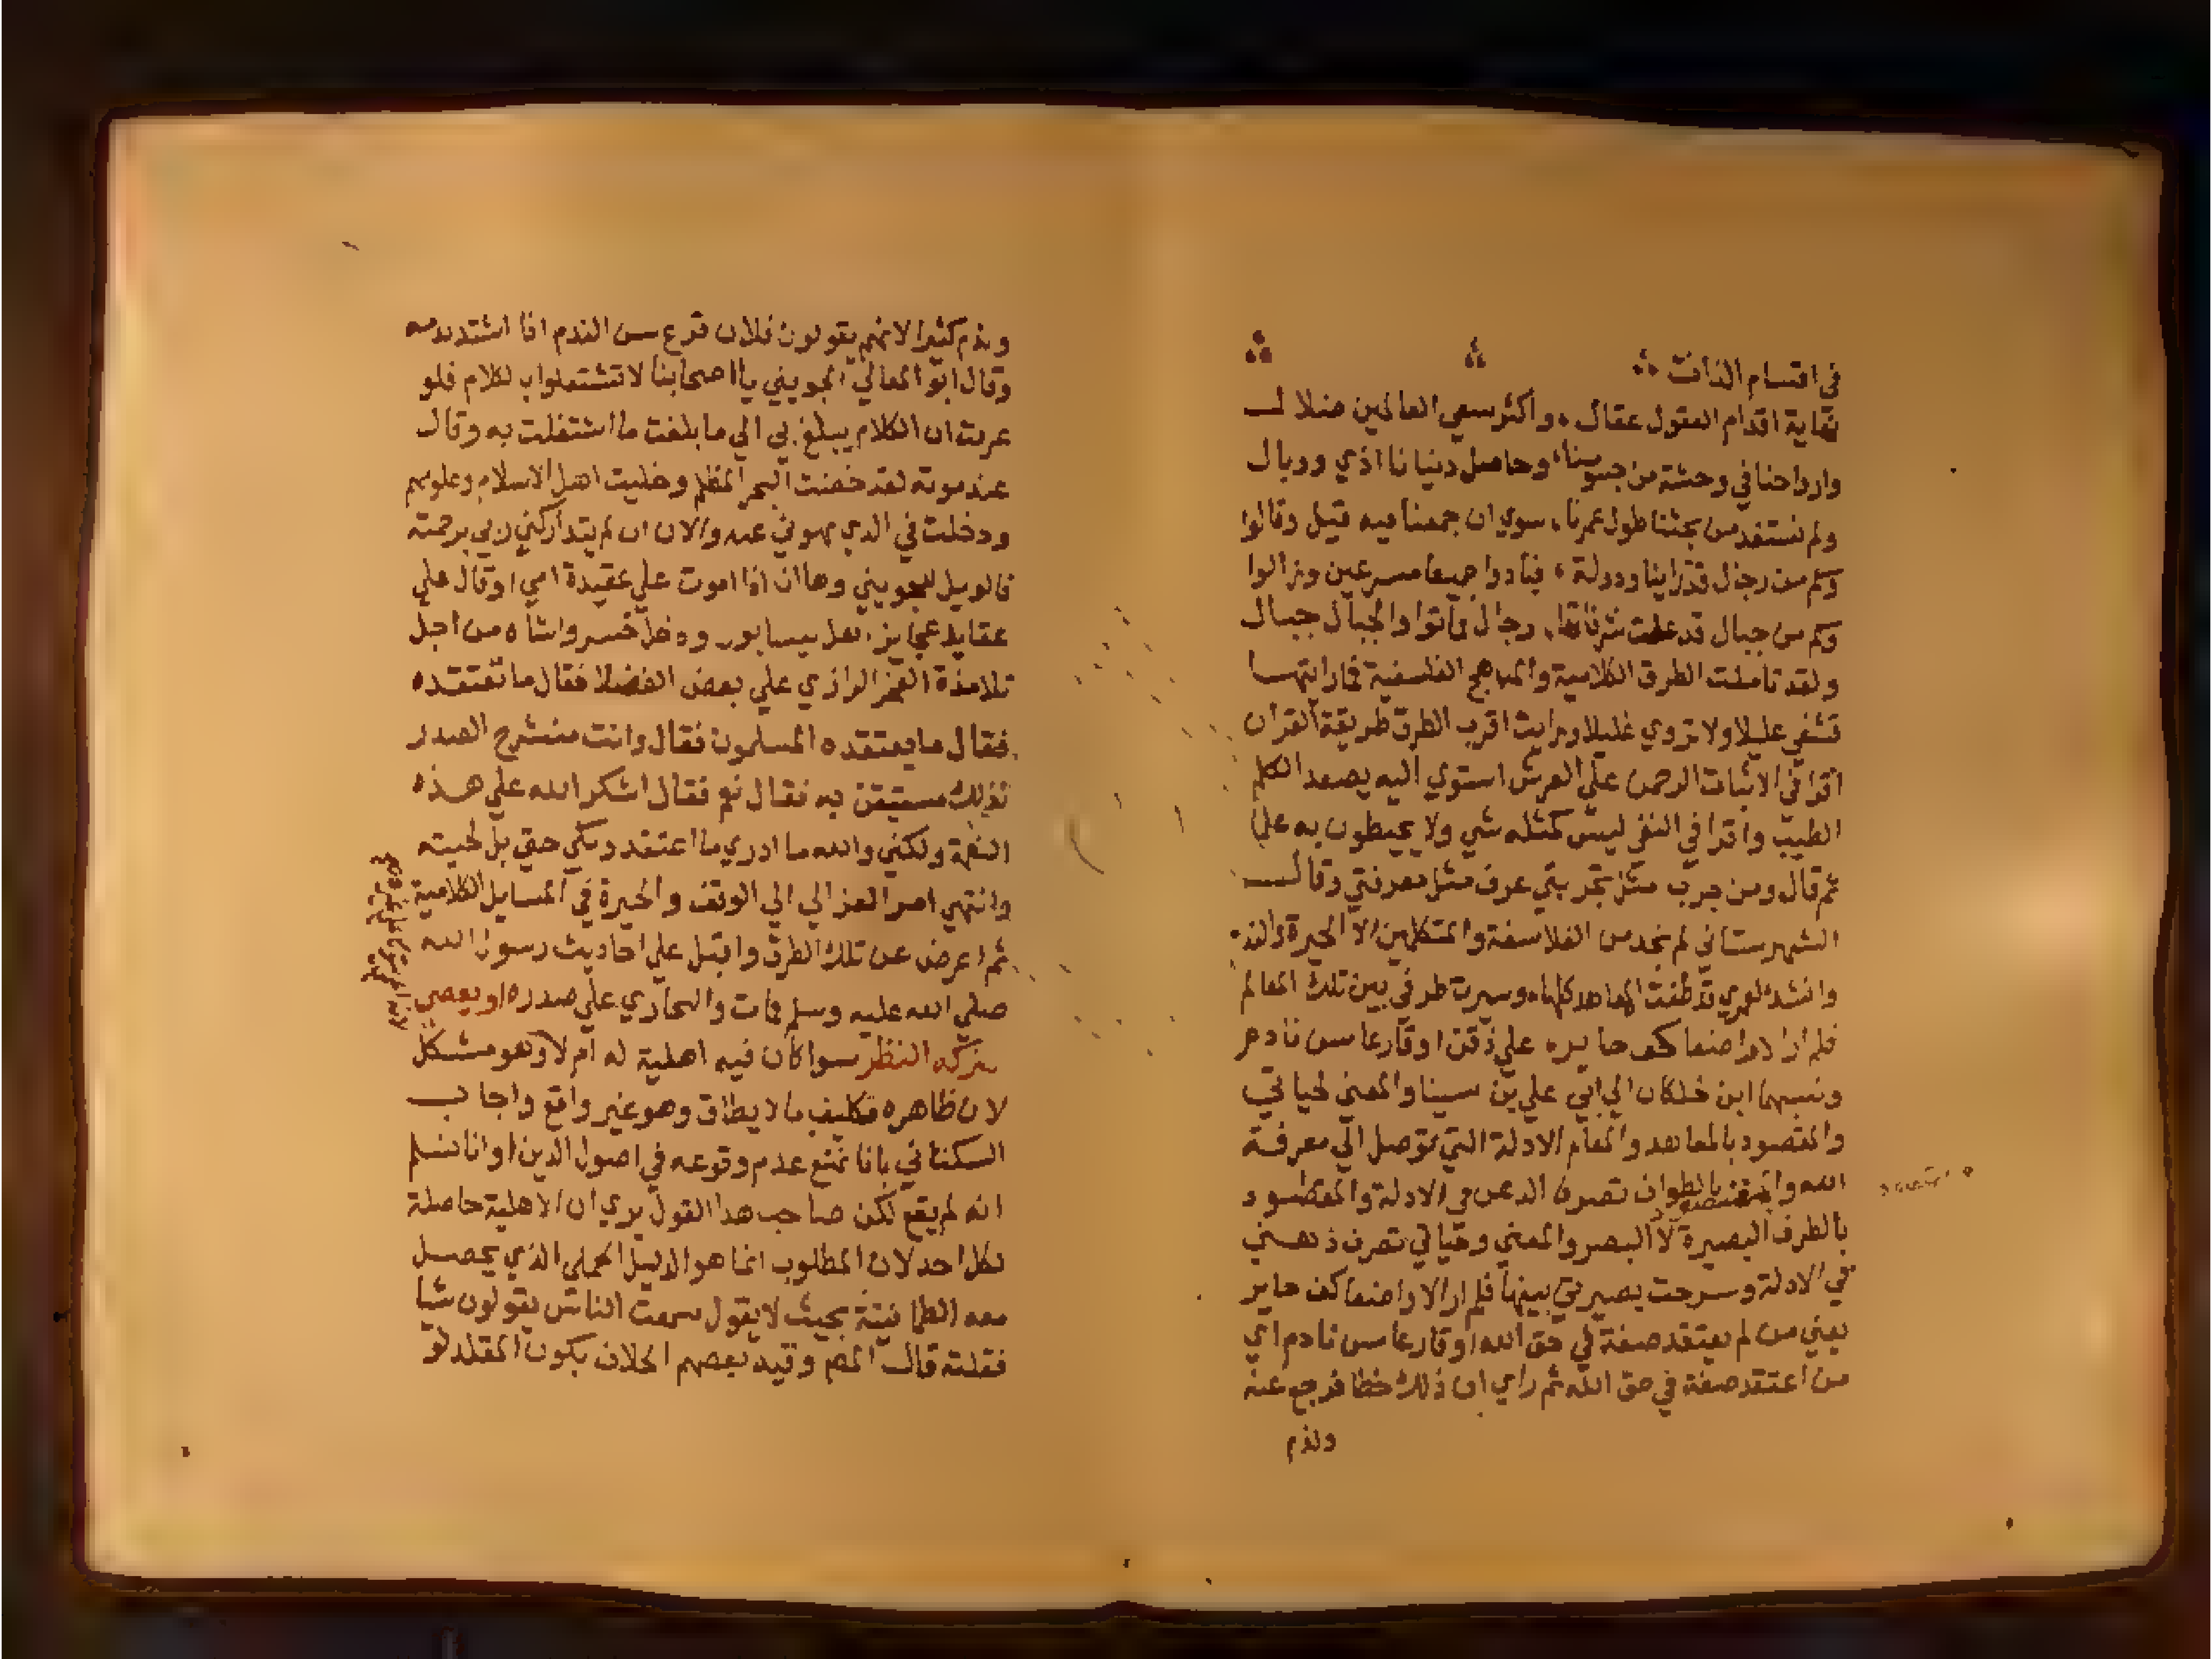 في اقسام الذات
نهاية اقدام العقول عقال واكثر سعي العالمين ضلال
وارواحنا في وحشة من جسومنا وحاصل دنيانا اذي ووبال
ولم نستفد من بحثنا طول عمرنا سوي ان جمعنا فيه قيل وقالوا
وكم من رجال قد راينا ودولة فبادوا جميعا مسرعين وزالوا
وكم من جبال قد علت شرفاتها رجال فماتوا والجبال جبال
ولقد تاملت الطرق الكلامية والمناهج الفلسفية فما رايتها
تشفي عليلا ولا تروي غليلا ورايت اقرب الطرق طريقة القران
اقرا في الاثبات الرحمن علي العرش استوي اليه يصعد الكلم
الطيب واقرا في النفي ليس كمثله شي ولا يحيطون به علما
ثم قال ومن جرب مثل تجربتي عرف مثل معرفتي وقال
الشهرستاني لم نجد من الفلاسفة والمتكلمين الا الحيرة والندم
وانشد لعمري قد طفت المعاهد كلها وسيرت طرفي بين تلك المعالم
فلم ار الا واضعا كف حاير علي ذقن او قارعا سن نادم
ونسبهما ابن خلكان الي ابي علي بن سينا والمعني لحياتي
والمقصود بالمعاهد والمعالم الادلة التي توصل الي معرفة
الله والمقصود بالطواف تصرف الذهن في الادلة والمقصود
بالطرف البصيرة لا البصر والمعني وحياتي تصرف ذهني
في الادلة وسرحت بصيرتي بينها فلم ار الا واضعا كف حاير
يعني من لم يعتقد صفة في حق الله او قارعا سن نادم اي
من اعتقد صفة في حق الله ثم راي ان ذلك خطا فرجع عنه
وندم
وندم كثيرا لانهم يقولون فلان قرع سن الندم اذا اشتد ندمه
وقال ابو المعالي الجويني يا اصحابنا لا تشتغلوا بالكلام فلو
عرفت ان الكلام يبلغ بي الي ما بلغت ما اشتغلت به وقال
عند موته لقد خضت البحر العظم وخليت اهل الاسلام وعلومهم
ودخلت في الذي نهوني عنه والان ان لم يتداركني ربي برحمته
فالويل للجويني وها انا اذا اموت علي عقيدة امي او قال علي
عقايد عجايز اهل نيسابور ودخل خسرواشاه من اجل
تلامذة الفخر الرازي علي بعض الفضلا فقال ما تعتقده
فقال ما يعتقده المسلمون فقال وانت منشرح الصدر
لذلك مستيقن به فقال نعم فقال اشكر الله علي هذه
النعمة ولكني والله ما ادري ما اعتقد وبكي حتي بل لحيته
وانتهي امر الغزالي الي الوقف والحيرة في المسايل الكلامية
ثم اعرض عن تلك الطرق واقبل علي احاديث رسول الله
صلي الله عليه وسلم فمات والبخاري علي صدره او يعصي
بتركه النظر سوا كان فيه اهلية له ام لا وهو مشكل
لان ظاهره تكليف ما لا يطاق وهو غير واقع واجاب
السكتاني بانا نمنع عدم وقوعه في اصول الدين او انا نسلم
انه لم يقع لكن صاحب هذا القول يري ان الاهلية حاصلة
لكل احد لان المطلوب انما هو الدليل الجملي الذي يحصل
معه الطمانينة بحيث لا يقول سمعت الناس يقولون شيا
فقلته قال المص وقيد بعضهم الخلاف بكون المقلد لو